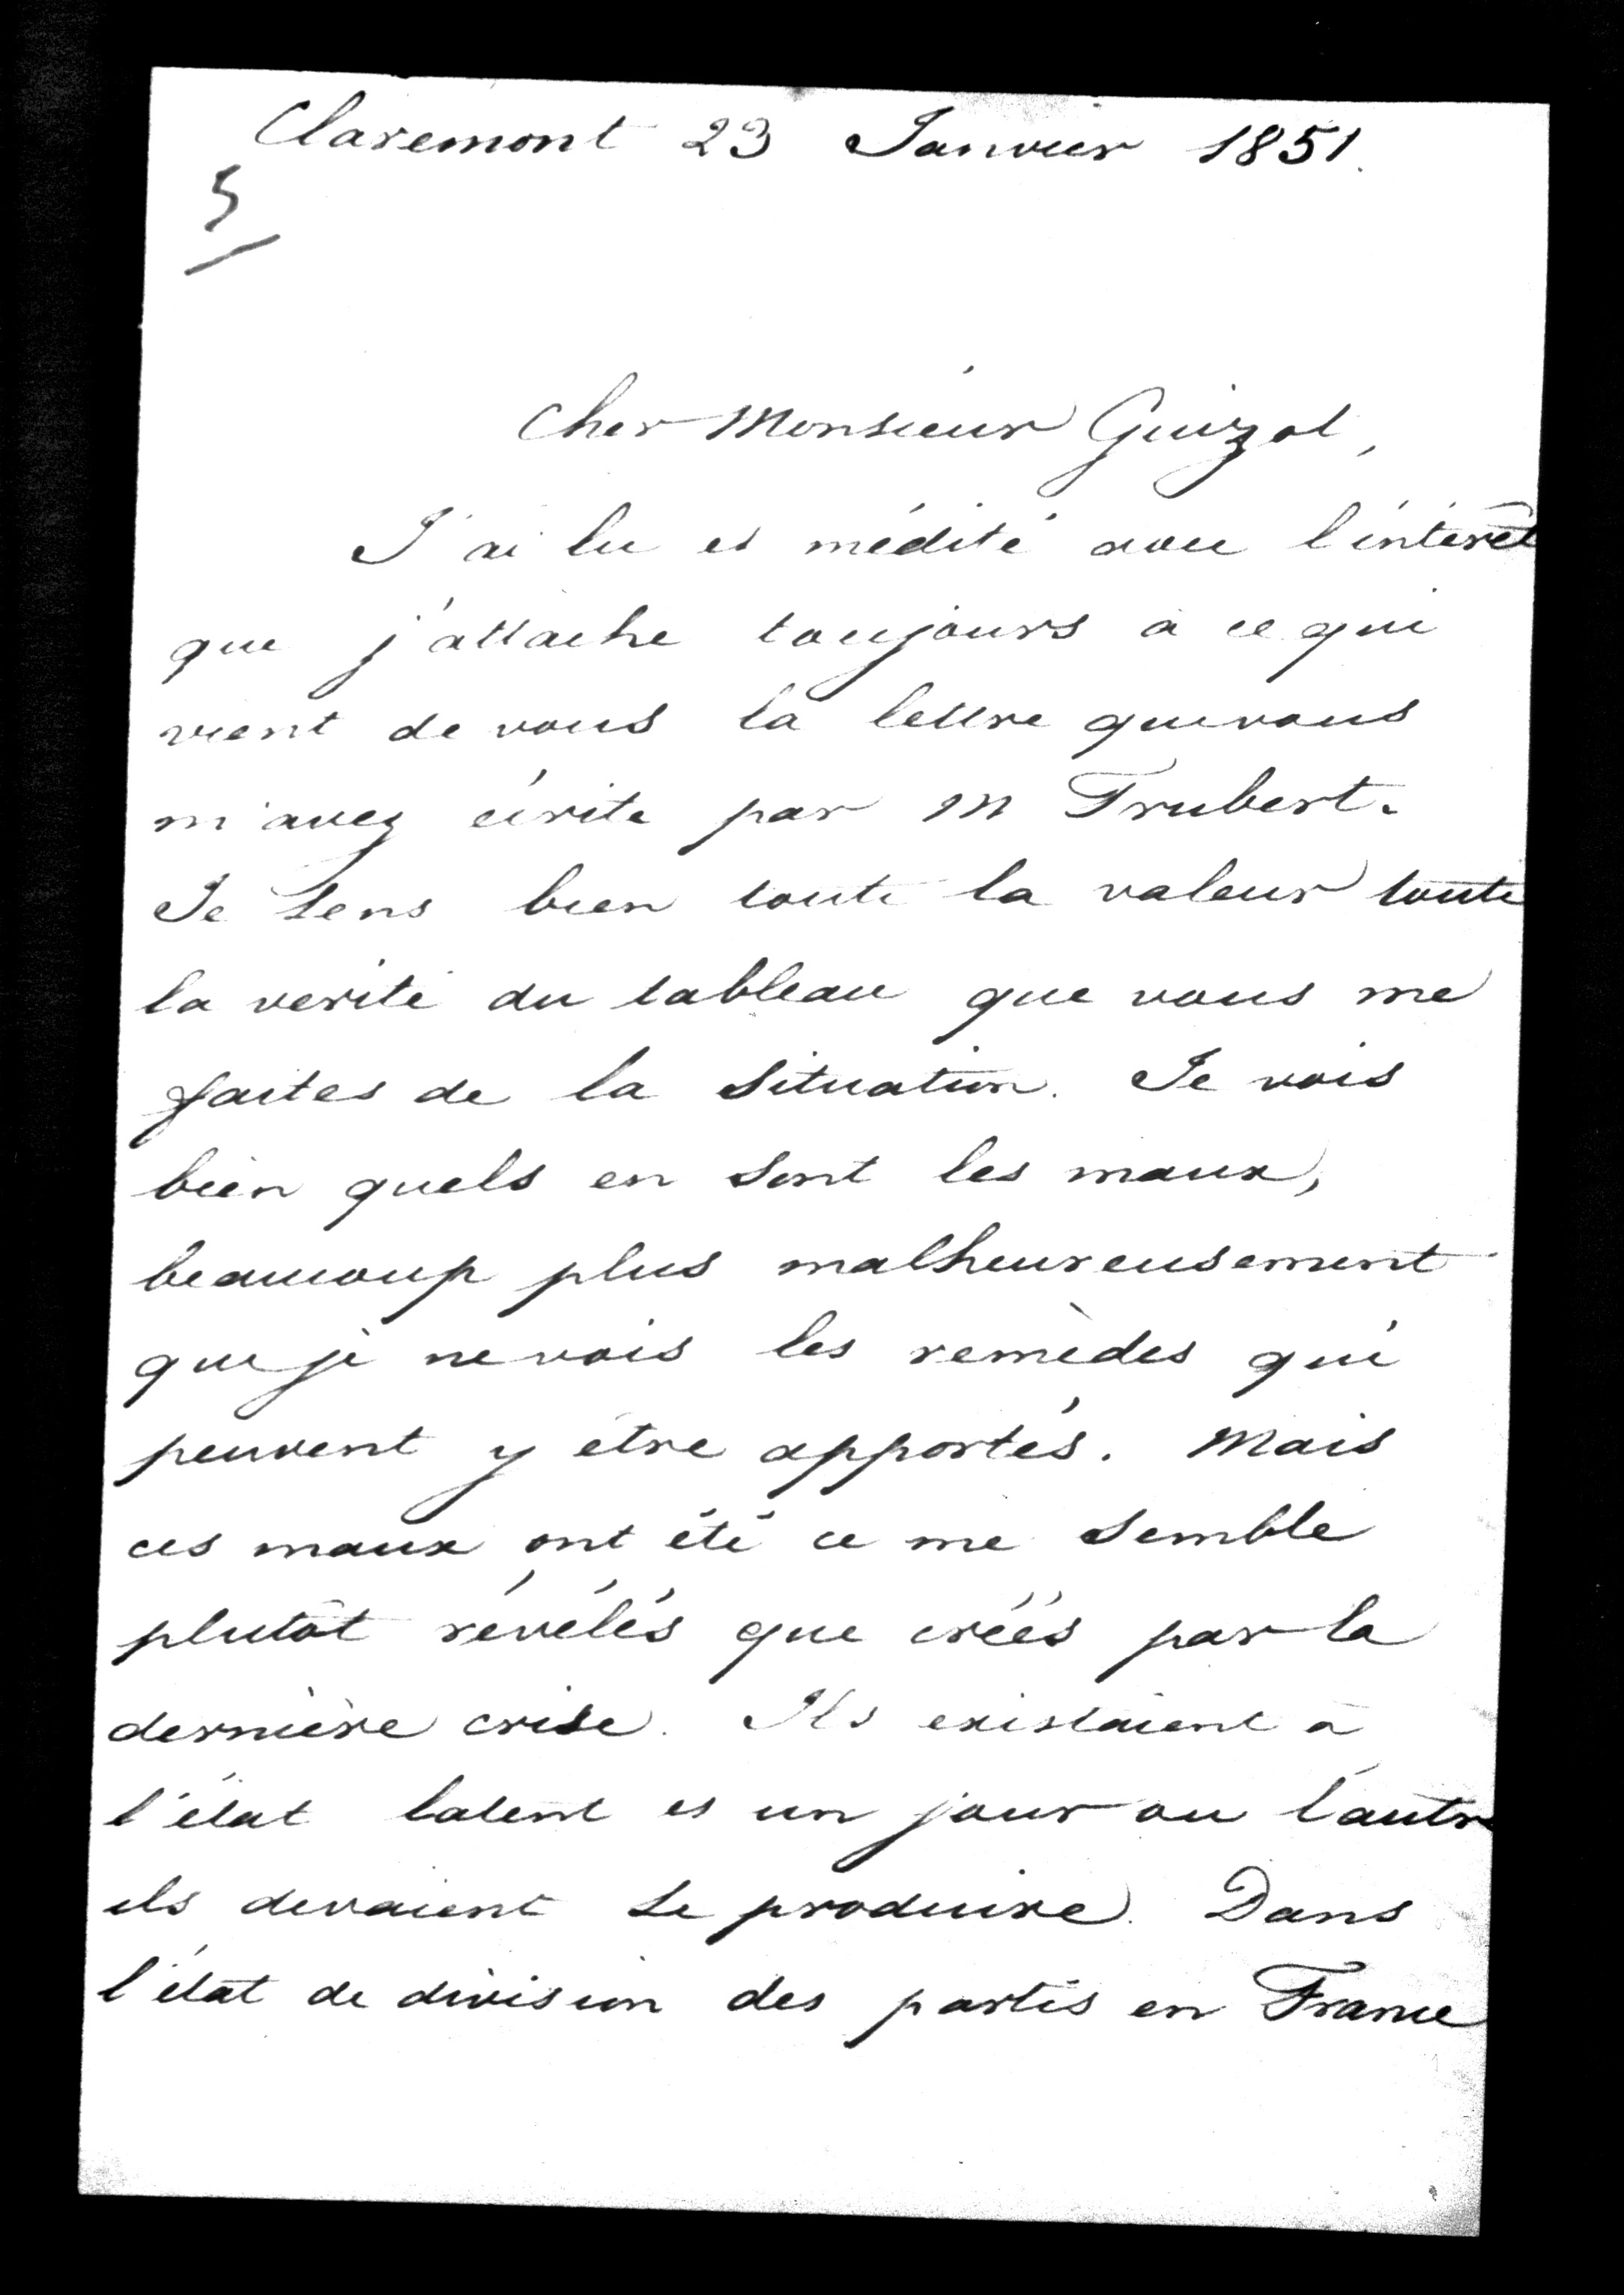 Claremont 23 Janvier 1851.
5
Cher Monsieur Guizot,
J'ai lu et médité avec l'intérêt
que j'attache toujours à ce qui
vient de vous la lettre que vous
m'avez écrite par M Trubert.
Je sens bien toute la valeur toute
la verité du tableau que vous me
faites de la situation. Je vois
bien quels en sont les maux,
beaucoup plus malheureusement
que je ne vois les remèdes qui
peuvent y être apportés. Mais
ces maux ont été ce me semble
plutôt révélés que créés par la
dernière crise. Ils existaient à
l'état latent et un jour ou l'autre
ils devaient se produire. Dans
l'état de division des partis en France